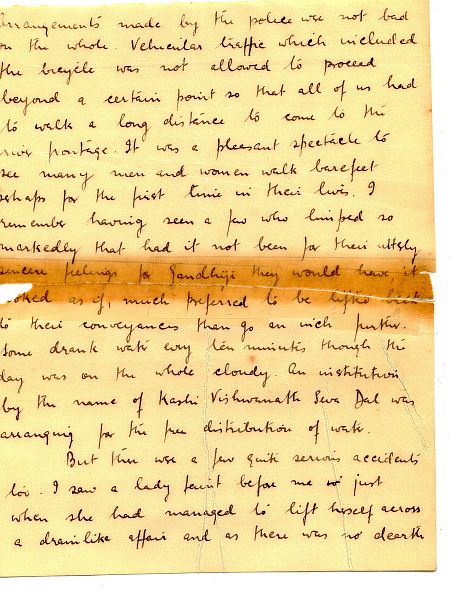 arrangements made by the police were not bad
on the whole. Vehicular traffic which included
the bicycle was not allowed to proceed
beyond a certain point so that all of us had
to walk a long distance to come to the
river frontage. It was a pleasant spectacle to
see many men and women walk barefeet
perhaps for the first time in their lives. I
remember having seen a few who limped so
markedly that had it not been for their utterly
sincere feelings for Gandhiji they would have, it
looked as if, much preferred to be lifted back
to their conveyances than go an inch further.
Some drank water every ten minutes though the
day was on the whole cloudy. An institution
by the name of Kashi Vishwanath Seva Dal was
arranging for the free distribution of water.
But there were a few quite serious accidents
too. I saw a lady faint before me just
when she had managed to lift herself across
a drainlike affair and as there was no dearth